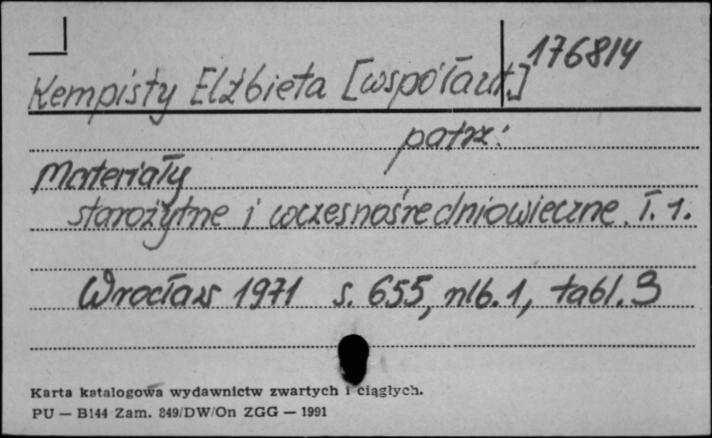 176814
Kempisty Elżbieta [współaut.]
patrz:
Materiały
starożytne i wczesnośredniowieczne. T. 1.
Wrocław 1971 s. 655, nlb. 1, tabl. 3
Karta katalogowa wydawnictw zwartych i ciągłych.
PU — B144 Zam. 849/DW/On ZGG — 1991